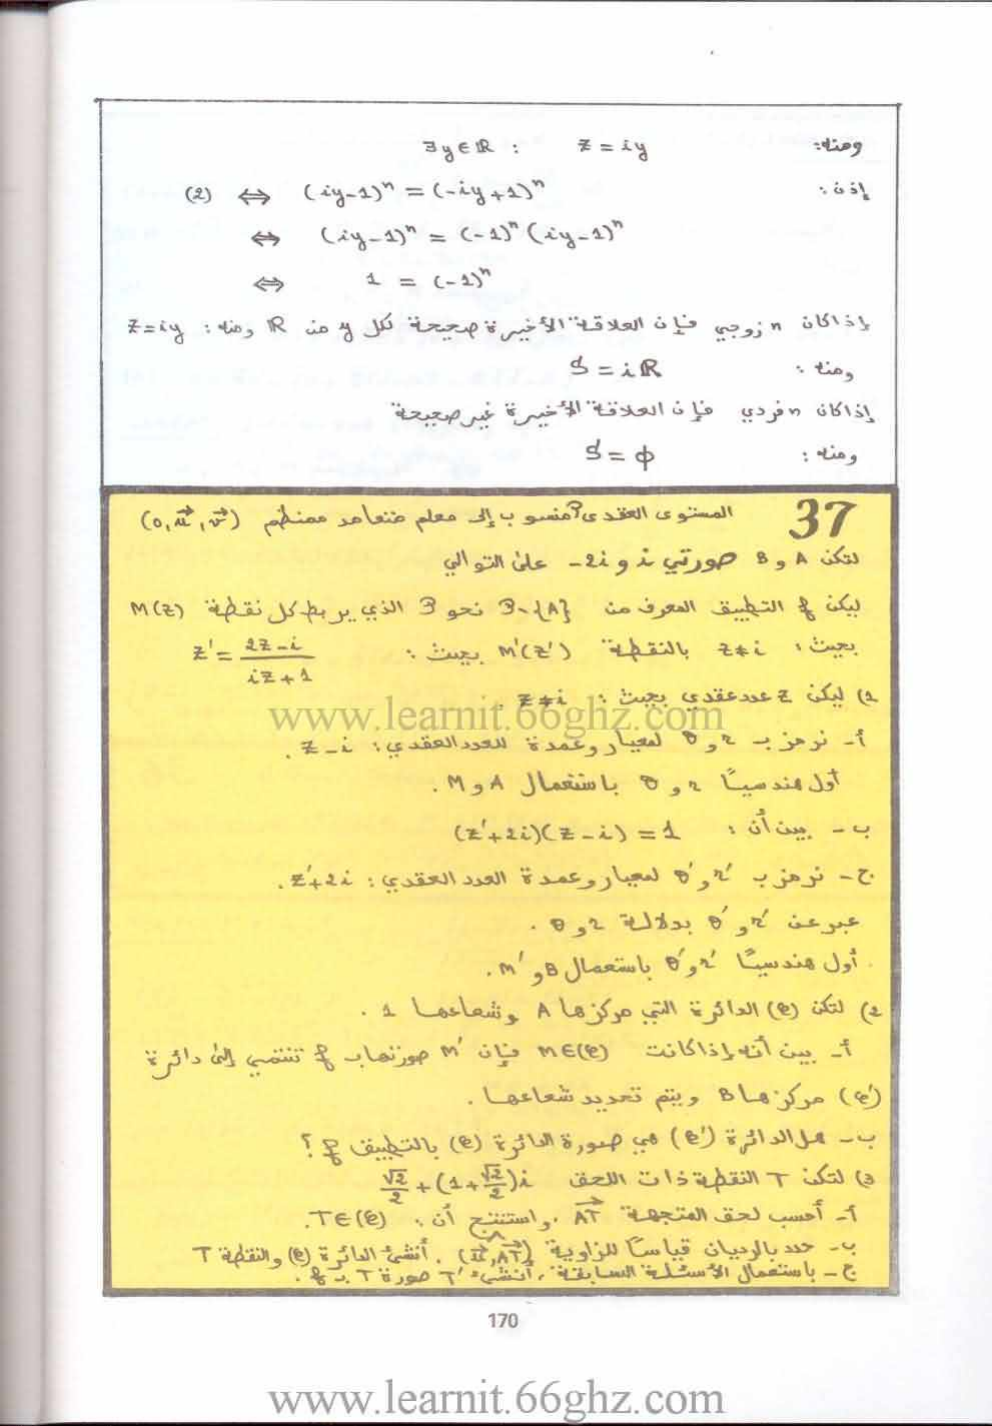 ومنه: ∃y∈ℝ : z = iy
إذن: (2) ⇔ (iy-1)ⁿ = (-iy+1)ⁿ
⇔ (iy-1)ⁿ = (-1)ⁿ (iy-1)ⁿ
⇔ 1 = (-1)ⁿ
إذا كان n زوجي فإن العلاقة الأخيرة صحيحة لكل y من ℝ ومنه: z=iy
ومنه: S = iℝ
إذا كان n فردي فإن العلاقة الأخيرة غير صحيحة
ومنه: S = ϕ
37 المستوى العقدي P منسوب إلى معلم متعامد ممنظم (o,u⃗,v⃗)
لتكن A و B صورتي i و -2i على التوالي
ليكن f التطبيق المعرف من P-{A} نحو P الذي يربط كل نقطة M(z)
بحيث: z≠i بالنقطة M'(z') بحيث: z' = (2z-i)/(iz+1)
1) ليكن z عدد عقدي بحيث: z≠i.
www.learnit.66ghz.com
أ- نرمز ب r و θ لمعيار وعمدة للعدد العقدي: z-i.
أول هندسيًا r و θ باستعمال A و M.
ب- بين أن: (z'+2i)(z-i) = 1
ج- نرمز ب r' و θ' لمعيار وعمدة العدد العقدي: z'+2i.
عبر عن r' و θ' بدلالة r و θ.
أول هندسيًا r' و θ' باستعمال B و M'.
2) لتكن (C) الدائرة التي مركزها A وشعاعها 1.
أ- بين أنه إذا كانت M∈(C) فإن M' صورتها ب f تنتمي إلى دائرة
(C') مركزها B ويتم تحديد شعاعها.
ب- هل الدائرة (C') هي صورة الدائرة (C) بالتطبيق f؟
3) لتكن T النقطة ذات اللحق √2/2 + (1+√2/2)i
أ- أحسب لحق المتجهة AT⃗، واستنتج أن: T∈(C).
ب- حدد بالرديان قياسًا للزاوية (u⃗,AT⃗). أنشئ الدائرة (C) والنقطة T
ج- باستعمال الأسئلة السابقة، أنشئ T' صورة T ب f.
170
www.learnit.66ghz.com